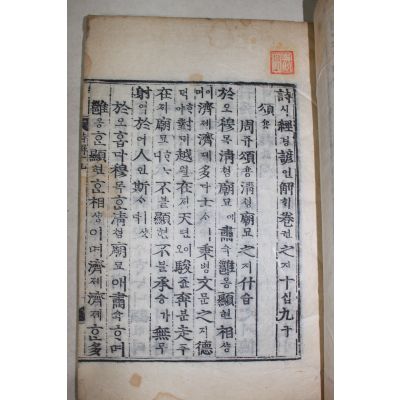 詩시經경諺언解ᄒᆡ卷권之지十십九구
頌숑
周쥬頌숑淸쳥廟묘之지什십
於오穆목淸쳥廟묘애肅슉雝옹顯현相샹
이며濟졔濟졔多다士ᄉᆞ秉병文문之지德
덕對ᄃᆡ越월在ᄌᆡ天텬이오駿쥰奔분走주
在ᄌᆡ廟묘不블顯현不블承승가無무
射역於어人인斯ᄉᆞㅣ샷
於오홉다穆목ᄒᆞᆫ淸쳥廟묘애肅슉ᄒᆞ며
雝옹ᄒᆞᆫ顯현ᄒᆞᆫ相샹이며濟졔濟졔ᄒᆞᆫ多